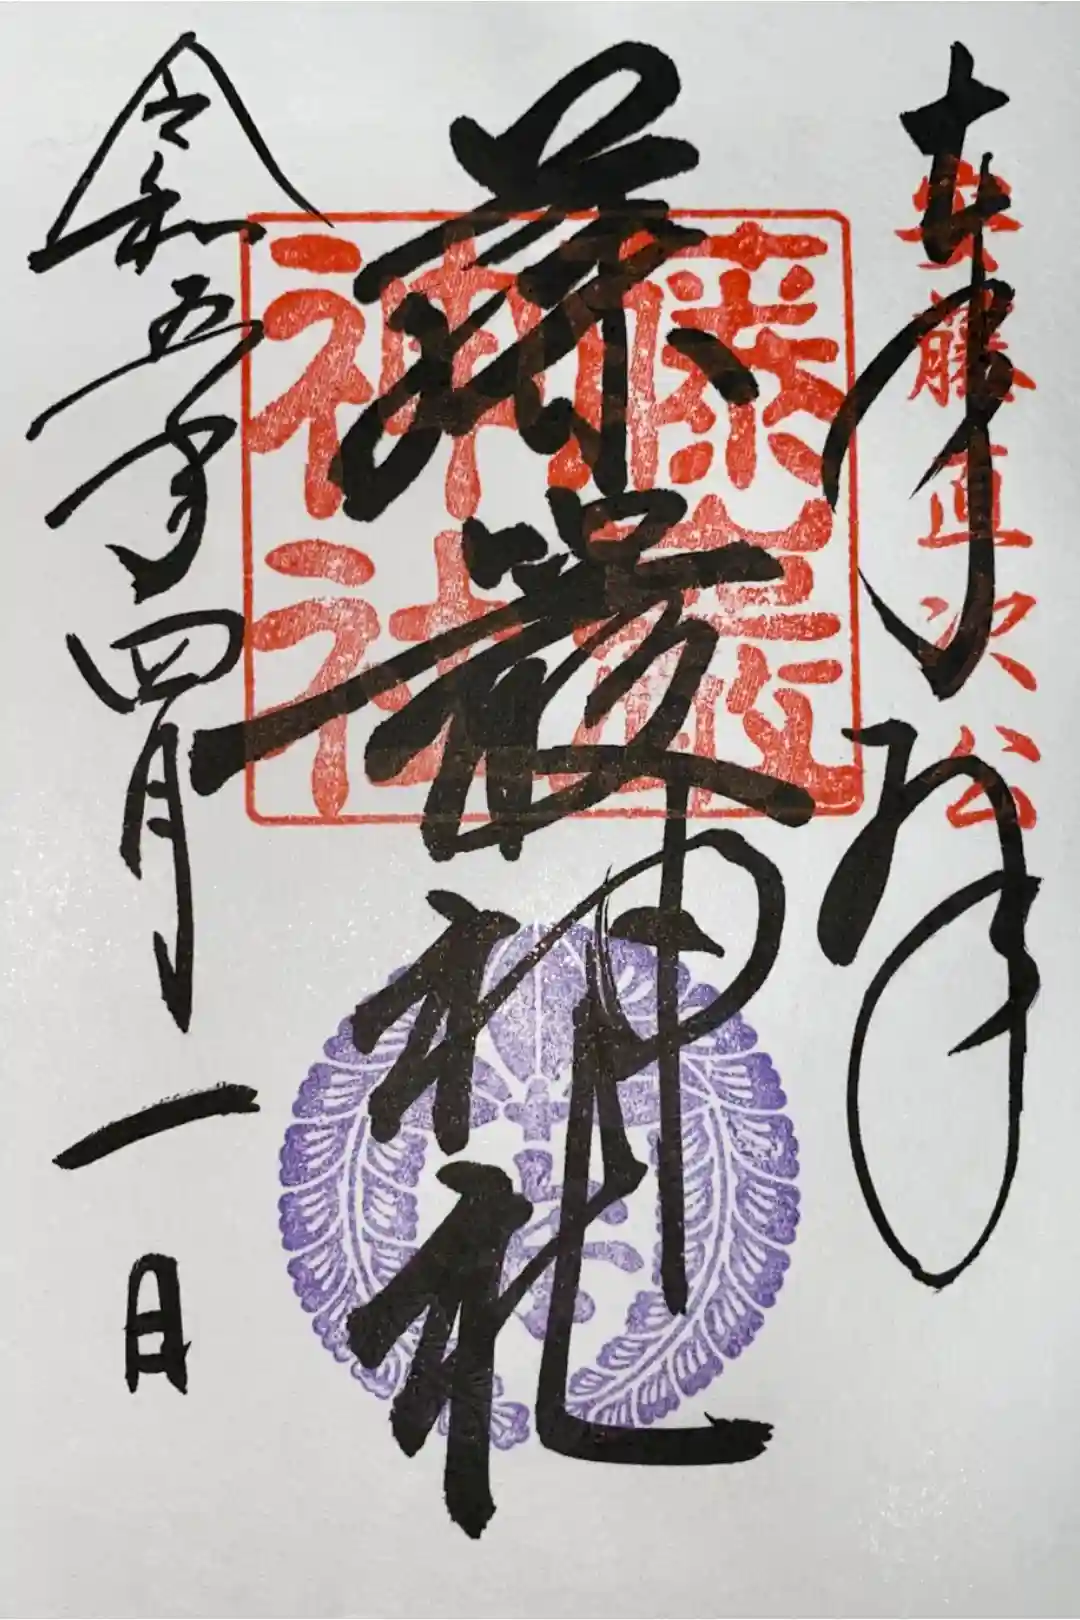 奉拝
安藤直次公
藤巖神社
藤巖神社
令和五年四月一日